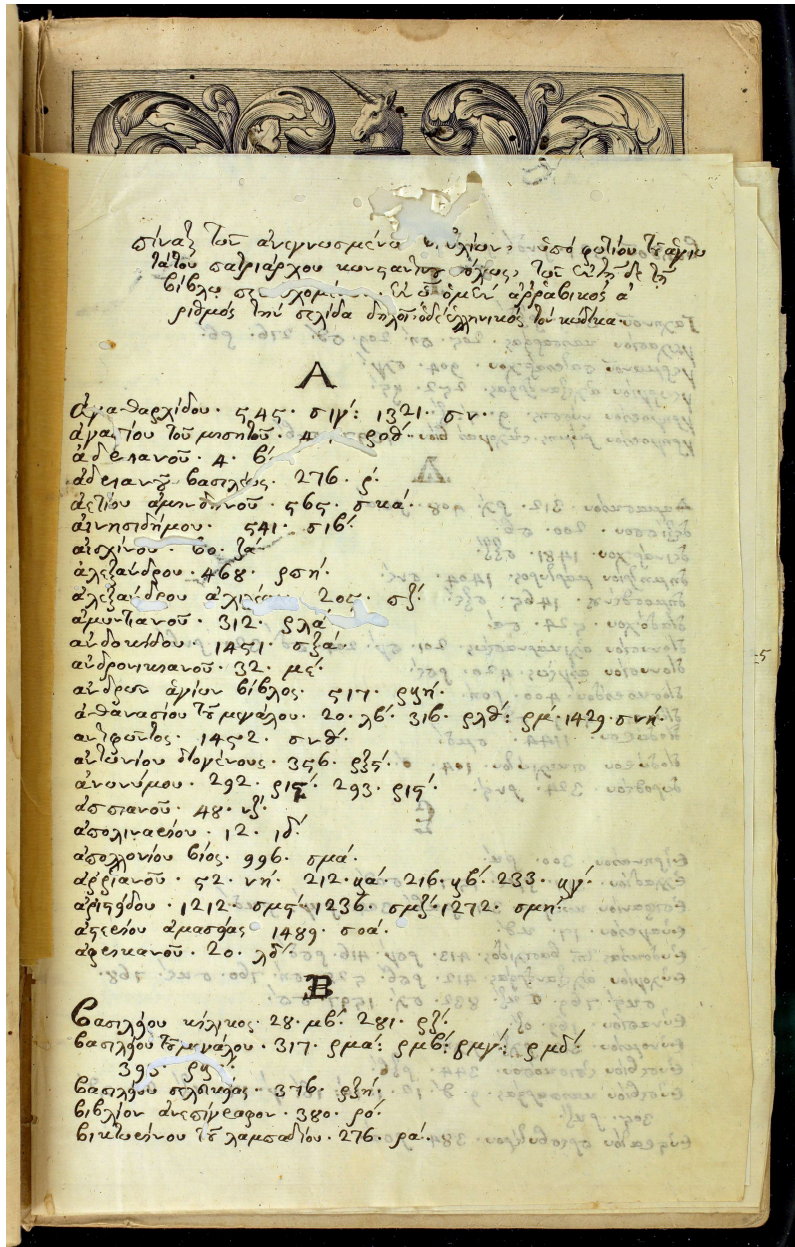 πίναξ τῶν ἀνεγνωσμένω βιβλίων, ὑπὸ φωτίου τοῦ ἁγιω
τάτου πατριάρχου κωνσταντινουπόλεως, τῶν ἐν τῇδε τῇ
βίβλῳ περιεχομένων. ἐν ᾧ ὁ μὲν ἀρραβικὸς ἀ
ριθμὸς τὴν σελίδα δηλοῖ· ὁ δὲ ἑλληνικὸς τὸν κώδικα.
Α
ἀγαθαρχίδου. 545. σιγ´: 1321. σν.
ἀγαπίου τοῦ 4 ροθ´.
ἀδριανοῦ. 4. β´.
ἀδριανοῦ βασιλέως. 276. ρ´.
ἀετίου ἀμηδηνοῦ. 565. σκά.
αἰνησιδήμου. 541. σιβ´.
αἰσχίνου. 60. ξά.
ἀλεξάνδρου. 468. ρπή.
ἀλεξάνδρου 205. σξ´.
ἀμυντιανοῦ. 312. ρλά
ἀνδοκίδου. 1451. σξά.
ἀνδρονικιανοῦ. 32. μέ.
ἀνδρῶν ἁγίων βίβλος. 517. ρϟή.
ἀθανασίου τοῦ μεγάλου. 20. λβ´. 316. ρλθ´: ρμ´. 1429. σνή.
ἀντιφῶντος. 1452. σνθ´.
ἀντωνίου διογένους. 356. ρξς´.
ἀνωνύμου. 292. ριϛ´. 293. ριϛ´.
ἀππιανοῦ. 48. νζ´.
ἀπολιναρίου. 12. ιδ´.
ἀπολλονίου βίος. 996. σμά.
ἀρριανοῦ. 52. νή. 212. ϟά. 216. ϟβ´. 233. ϟγ´.
ἀριστείδου. 1212. σμϛ´. 1236. σμζ´. 1272. σμή.
ἀστερίου ἀμασείας 1489. σοά.
ἀφρικανοῦ. 20. λδ´.
Β
βασιλείου κίλικος. 28. μβ´. 281. ρζ´.
βασιλείου τοῦ μεγάλου. 317. ρμά: ρμβ´: ρμγ´: ρμδ´.
βασιλείου σελευκείας. 376. ρξή.
βιβλίον ἀνεπίγραφον. 380. ρο´.
βικτωρίνου τοῦ λαμπαδίου. 276. ρά.